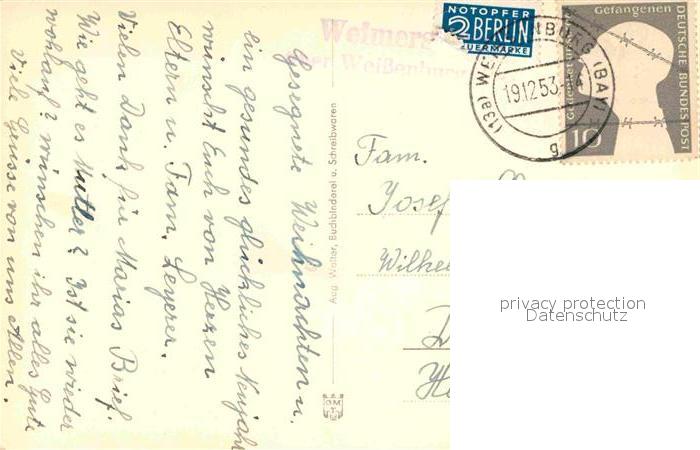 Gesegnete Weihnachten u.
ein gesundes glückliches Neujahr
wünscht Euch von Herzen
Eltern u. Fam. Leyerer.
Vielen Dank für Marias Brief.
Wie geht es Mutter? Ist sie wieder
wohlauf? wünschen ihr alles Gute
Viele Grüsse von uns Allen.
Aug. Walter, Buchbinderei u. Schreibwaren
über Weißenburg
NOTOPFER
2 BERLIN
STEUERMARKE
(13a) WEISSENBURG (BAY)
19.12.53
g
Gefangenen
DEUTSCHE BUNDESPOST
10
Fam.
Josef
Wilhel
privacy protection
Datenschutz